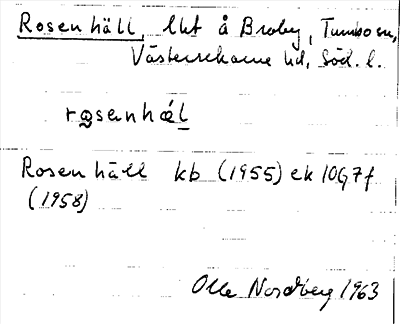 Rosenhäll, lht å Broby, Tumbo sn,
Västerrekarne hd, Söd. l.
rosenhäl
Rosenhäll kb (1955) ek 10G7f
(1958)
Olle Nordberg 1963